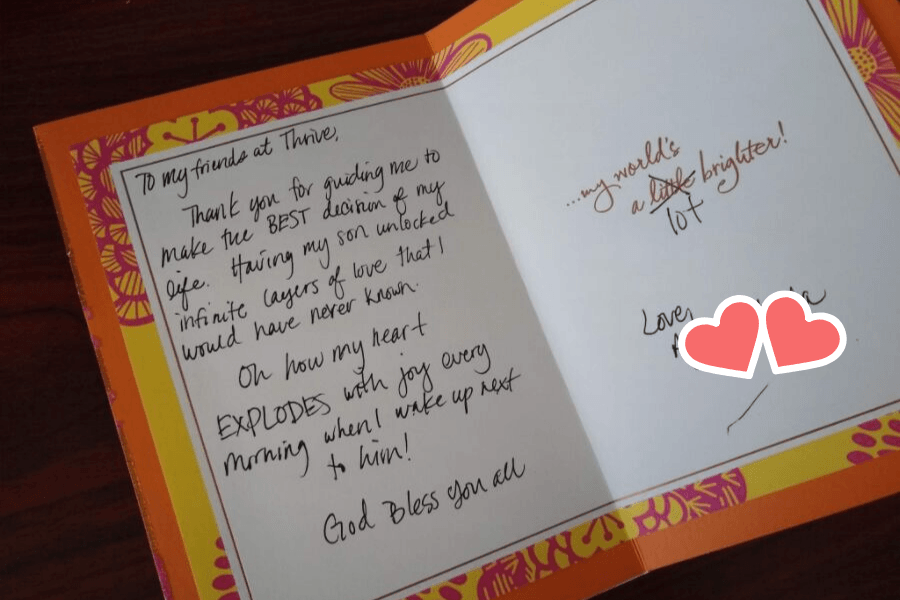 To my friends at Thrive,
Thank you for guiding me to
make the BEST decision of my
life. Having my son unlocked
infinite layers of love that I
would have never known.
Oh how my heart
EXPLODES with joy every
morning when I wake up next
to him!
God Bless You all
...my world's
a little brighter!
lot
Love,